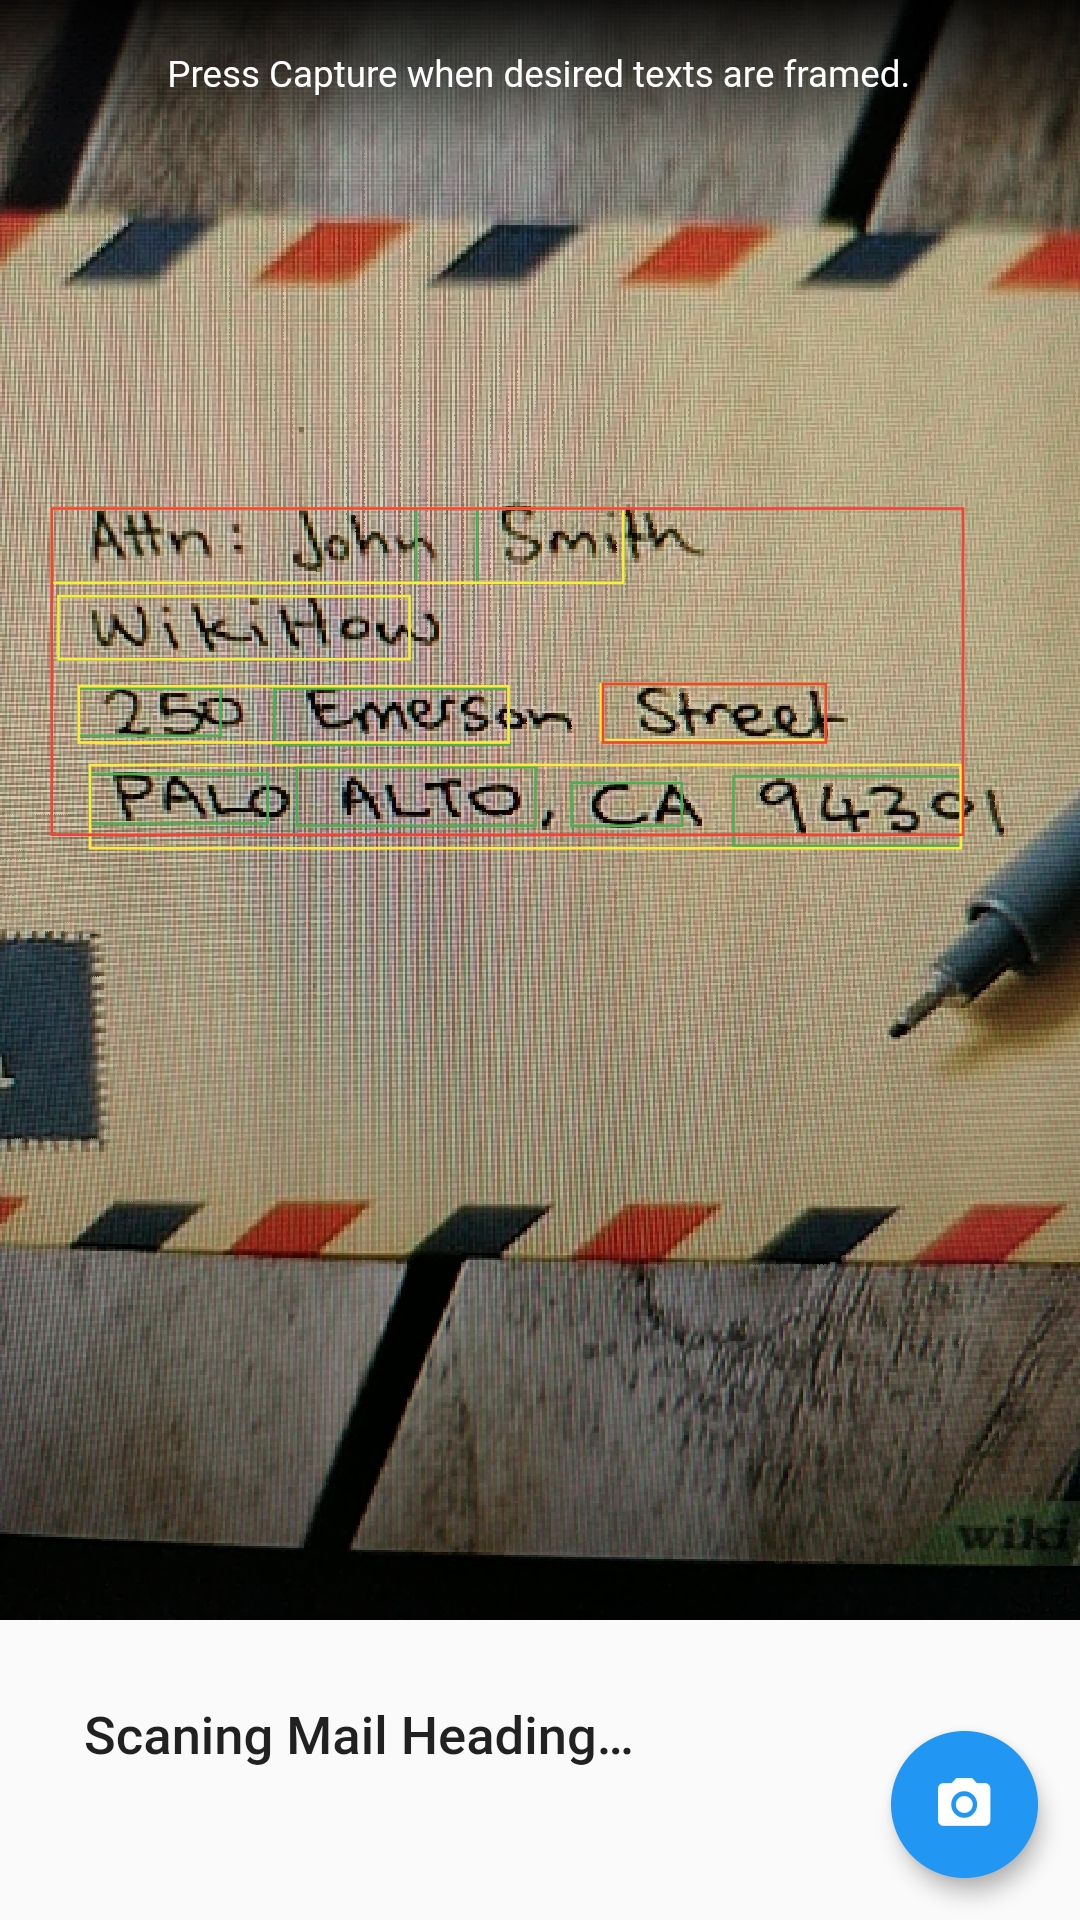 Press Capture when desired texts are framed.
Attn: John Smith
WikiHow
250 Emerson Street
PALO ALTO, CA 94301
wiki
Scaning Mail Heading...